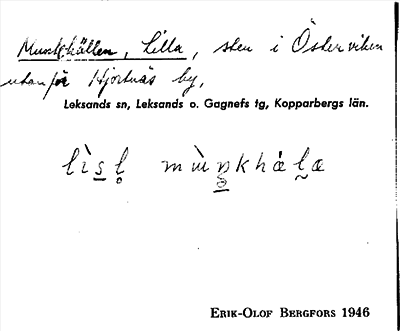 Munkhällen, Lilla, sten i Österviken
utanför Hjortnäs by,
Leksands sn, Leksands o. Gagnefs tg, Kopparbergs län.
lìsl̥ mùŋkhálæ
ERIK-OLOF BERGFORS 1946